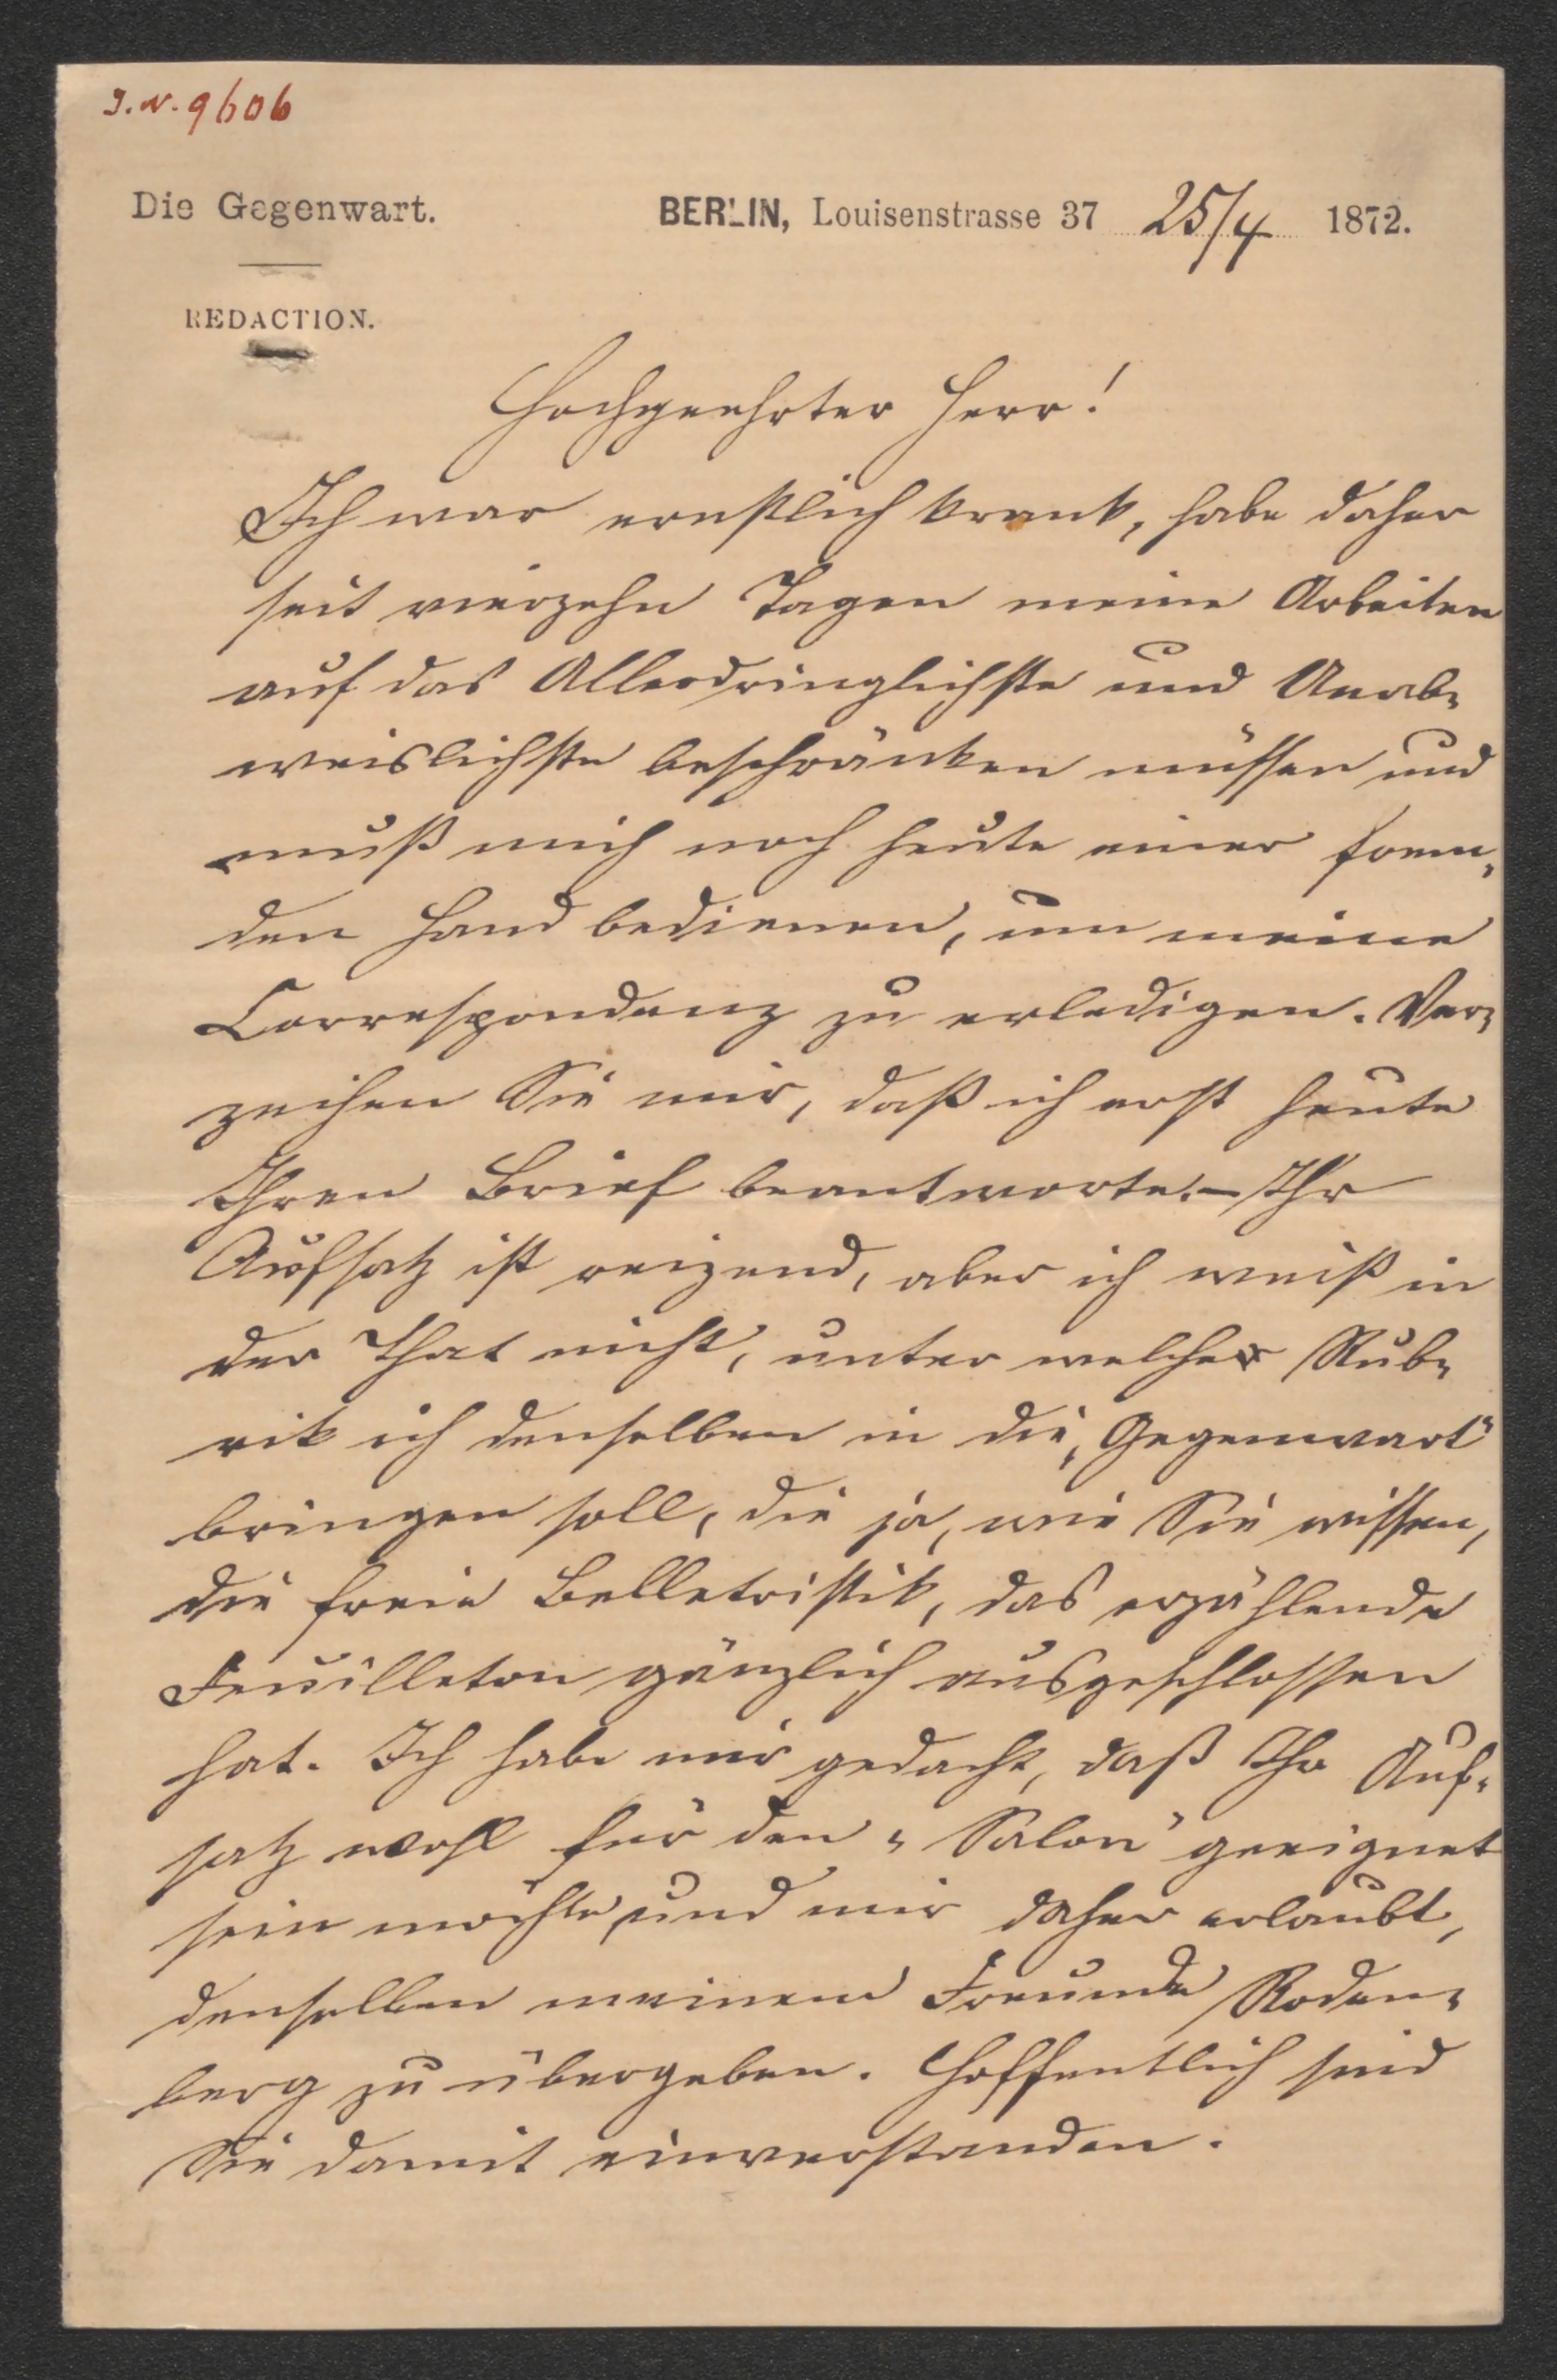 J. N. 9606
Die Gegenwart.
BERLIN, Louisenstrasse 37 25/4 1872.
REDACTION.
Hochgeehrter Herr!
Ich war ernstlich krank, habe daher
seit vierzehn Tagen meine Arbeiten
auf das Allerdringlichste und Unab-
weislichste beschränken müssen und
muß mich noch heute einer frem-
den Hand bedienen, um meine
Correspondenz zu erledigen. Ver-
zeihen Sie mir, daß ich erst heute
Ihren Brief beantworte. – Ihr
Aufsatz ist reizend, aber ich weiß in
der That nicht, unter welcher Rub-
rik ich denselben in die „Gegenwart“
bringen soll, die ja, wie Sie wissen,
die freie Belletristik, das erzählende
Feuilleton gänzlich ausgeschlossen
hat. Ich habe mir gedacht, daß Ihr Auf-
satz wohl für den „Salon“ geeignet
sein möchte, und mir daher erlaubt,
denselben meinem Freunde Roden-
berg zu übergeben. Hoffentlich sind
Sie damit einverstanden.